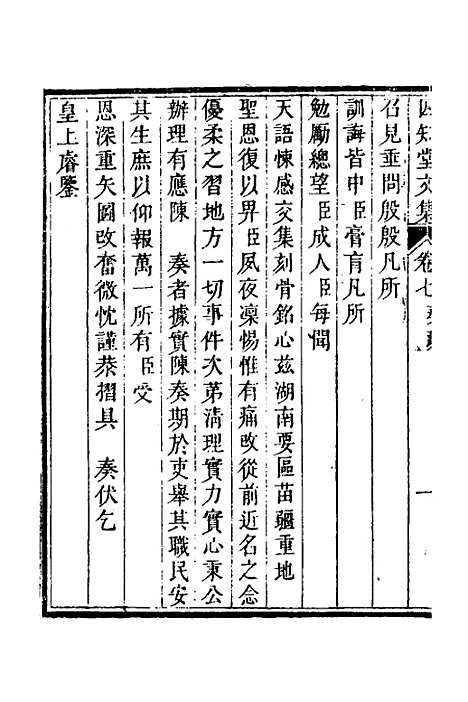 四知堂文集 卷七 奏疏 一
召見垂問殷殷凡所
訓誨皆中臣膏肓凡所
勉勵總望臣成人臣每聞
天語悚感交集刻骨銘心茲湖南要區苗疆重地
聖恩復以畀臣夙夜凜惕惟有痛改從前近名之念
優柔之習地方一切事件次第清理實力實心秉公
辦理有應陳 奏者據實陳奏期於吏舉其職民安
其生庶以仰報萬一所有臣受
恩深重矢圖改奮微忱謹恭摺具 奏伏乞
皇上睿鑒